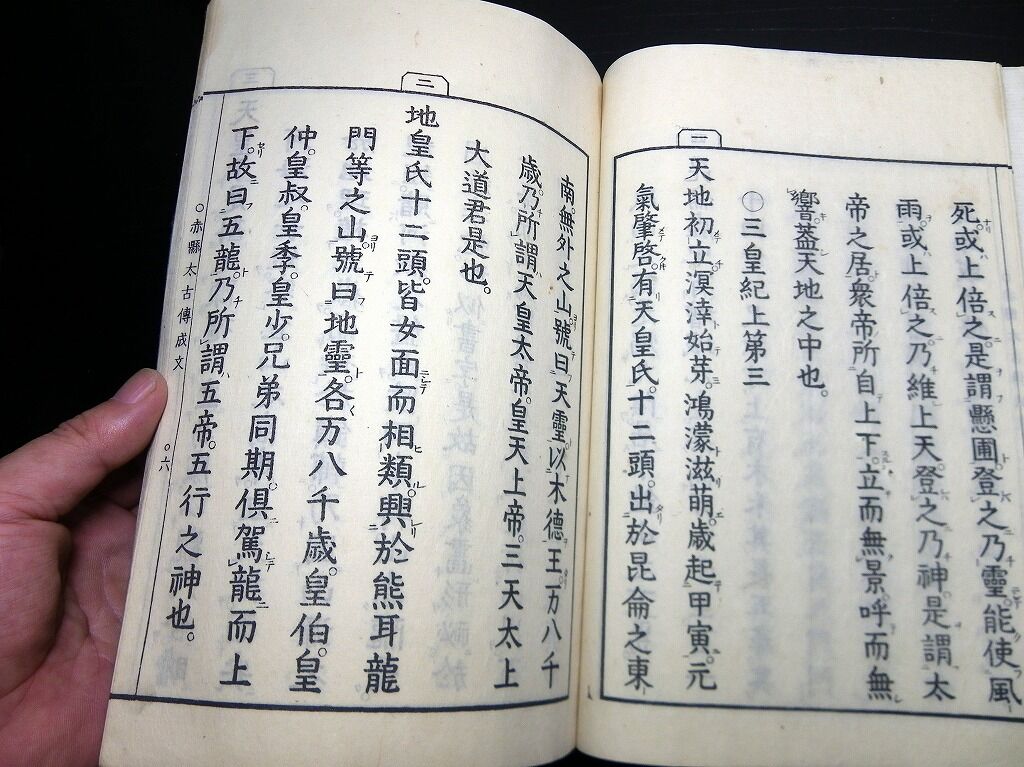 死。或上倍之。是謂懸圃。登之乃靈。能使風
雨。或上倍之。乃維上天。登之乃神。是謂太
帝之居。衆帝所自上下。立而無景。呼而無
響。蓋天地之中也。
○三皇紀上第三
一
天地初立。溟涬始芽。鴻濛滋萌。歲起甲寅。元
氣肇啓。有天皇氏。十二頭。出於昆侖之東
南。無外之山。號曰天靈。以木德王。万八千
歲。乃所謂天皇太帝。皇天上帝。三天太上
大道君是也。
二
地皇氏十二頭。皆女面而相類。興於熊耳龍
門等之山。號曰地靈。各万八千歲。皇伯。皇
仲。皇叔。皇季。皇少。兄弟同期。俱駕龍而上
下。故曰五龍。乃所謂五帝。五行之神也。
○赤縣太古傳成文
○六